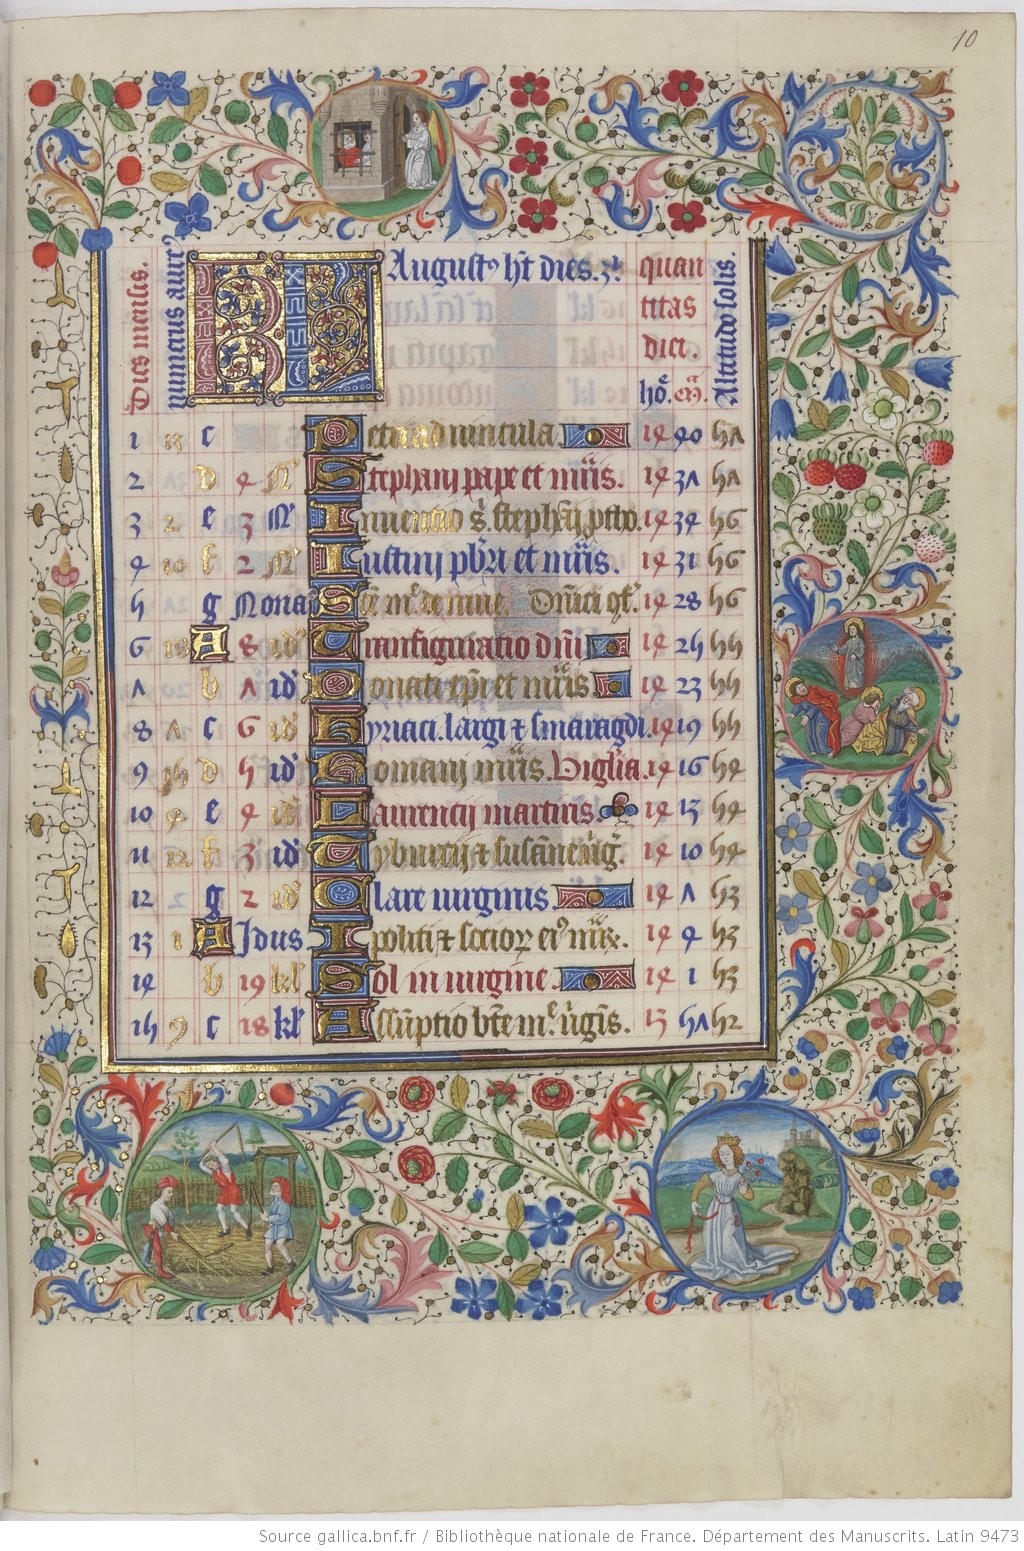 10
Dies mensis.
numerus aure9
KL August9 ht dies. 31.
quan
titas
diei.
ho. m.
Altitudo solis.
1 13 c Petri ad uincula. 14 40 57
2 d 4 N Stephani pape et mris. 14 37 57
3 2 e 3 N Inuentio s. stephani ptho. 14 34 56
4 10 f 2 N Iustini pbri et mris. 14 31 56
5 g Nonas Sce mie de niue. Dnici 9f. 14 28 56
6 18 A 8 id Transfiguratio dni 14 25 55
7 b 7 id Donati epi et mris. 14 23 55
8 7 c 6 id Kyriaci. largi et smaragdi. 14 19 55
9 15 d 5 id Romani mris. Vigilia. 14 16 54
10 4 e 4 id Laurentij martiris. 14 13 54
11 12 f 3 id Tyburtij et susanne uirg. 14 10 54
12 g 2 id Clare uirginis. 14 7 53
13 1 A Idus Ipoliti et socior ei9 mrx. 14 4 53
14 b 19 kl Sol in uirgine. 14 1 53
15 9 c 18 kl Assuptio bte me uirgis. 13 57 52
Source gallica.bnf.fr / Bibliothèque nationale de France. Département des Manuscrits. Latin 9473